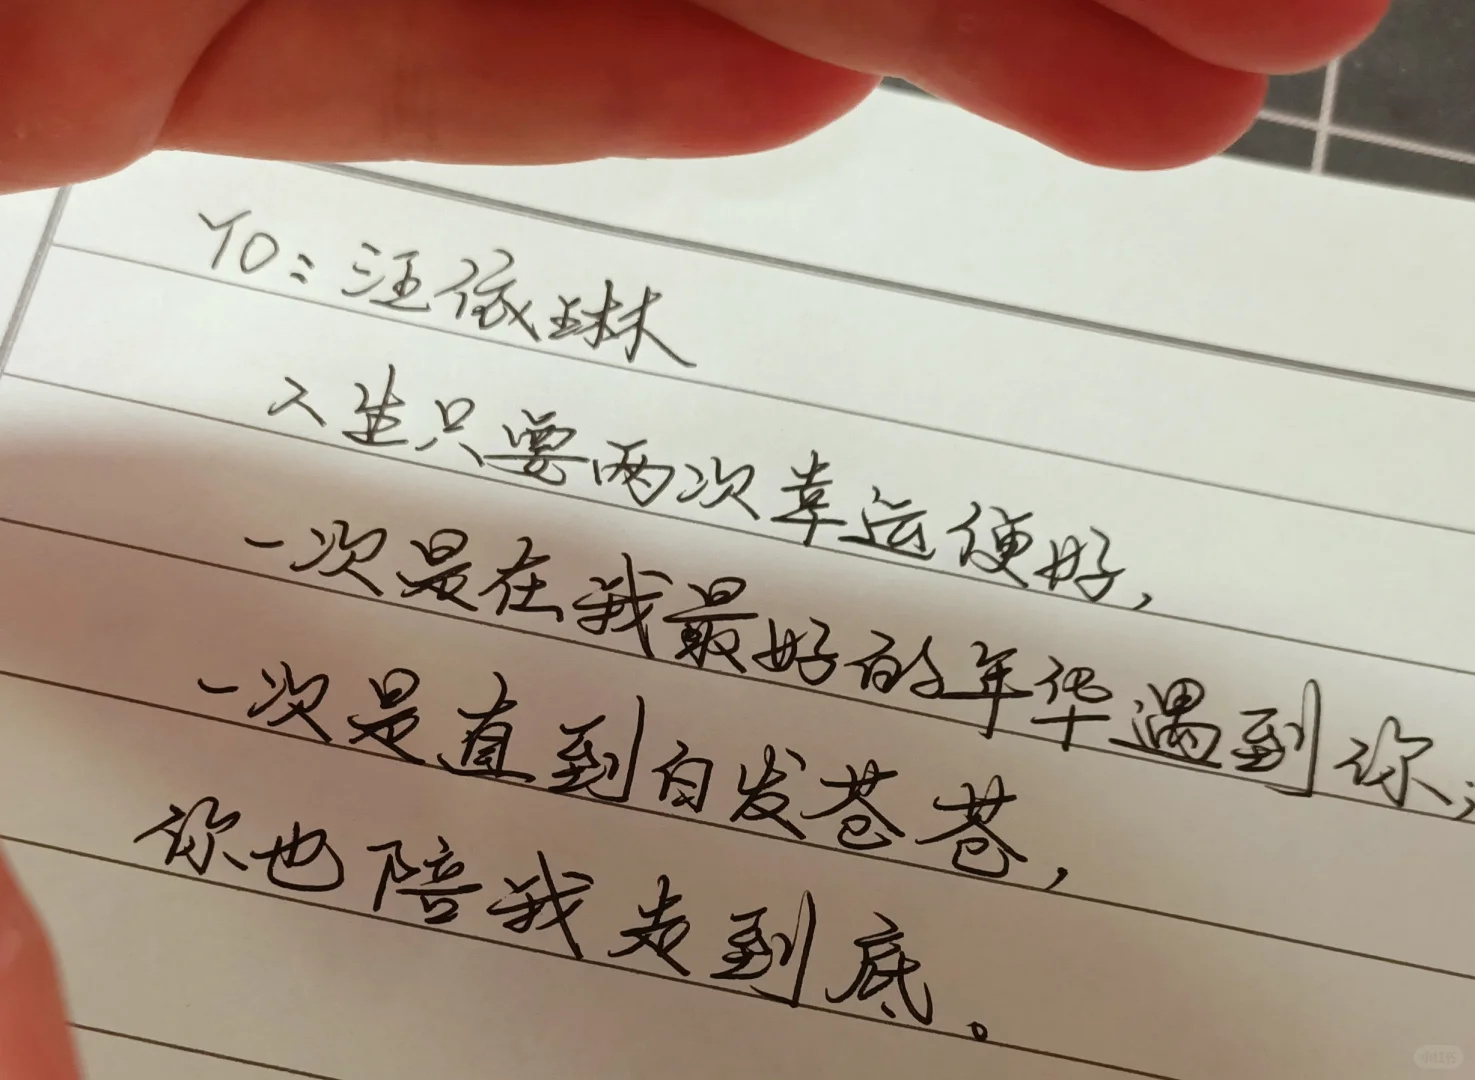 TO：汪依琳
人生只要两次幸运便好，
一次是在我最好的年华遇到你，
一次是直到白发苍苍，
你也陪我走到底。
小红书